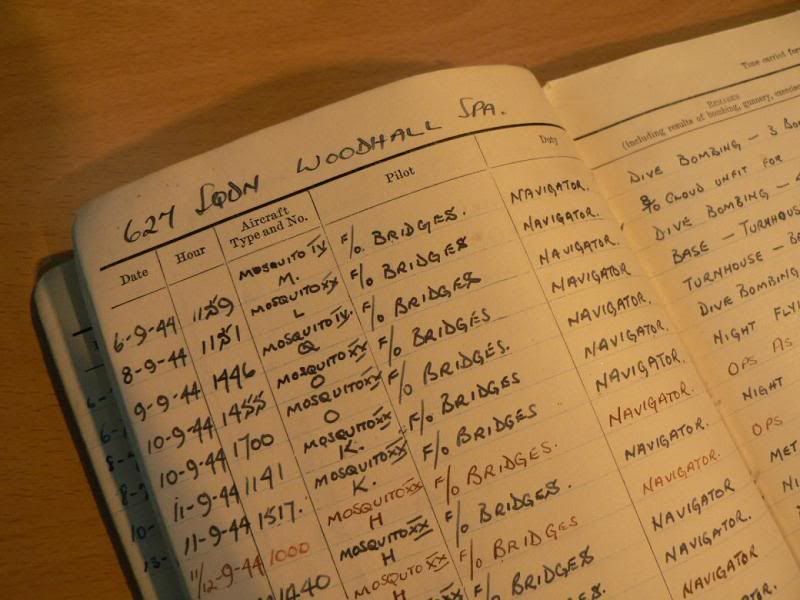 627 SQDN WOODHALL SPA.
Date Hour Aircraft Type and No. Pilot Duty
6-9-44 1159 MOSQUITO IV M. F/O BRIDGES. NAVIGATOR.
8-9-44 1151 MOSQUITO XX L F/O BRIDGES NAVIGATOR.
9-9-44 1446 MOSQUITO IV. Q F/O BRIDGES NAVIGATOR.
10-9-44 1455 MOSQUITO XX O F/O BRIDGES NAVIGATOR.
10-9-44 1700 MOSQUITO XX O F/O BRIDGES. NAVIGATOR.
11-9-44 1141 MOSQUITO XX K. F/O BRIDGES NAVIGATOR.
11-9-44 1517. MOSQUITO XX K. F/O BRIDGES NAVIGATOR.
11/12-9-44 1000 MOSQUITO XX H F/O BRIDGES. NAVIGATOR.
1440 MOSQUITO XX H F/O BRIDGES. NAVIGATOR.
MOSQUITO XX H F/O BRIDGES NAVIGATOR.
F/O BRIDGES. NAVIGATOR
NAVIGATOR.
NAVIGATOR
NAVIGATOR.
Time carried for
REMARKS
(including results of bombing, gunnery, exercise
DIVE BOMBING — 3 BO
8/10 CLOUD UNFIT FOR
DIVE BOMBING — 4
BASE — TURNHOUS
TURNHOUSE — BA
DIVE BOMBING
NIGHT FLYI
OPS AS
NIGHT
OPS
MET
NI